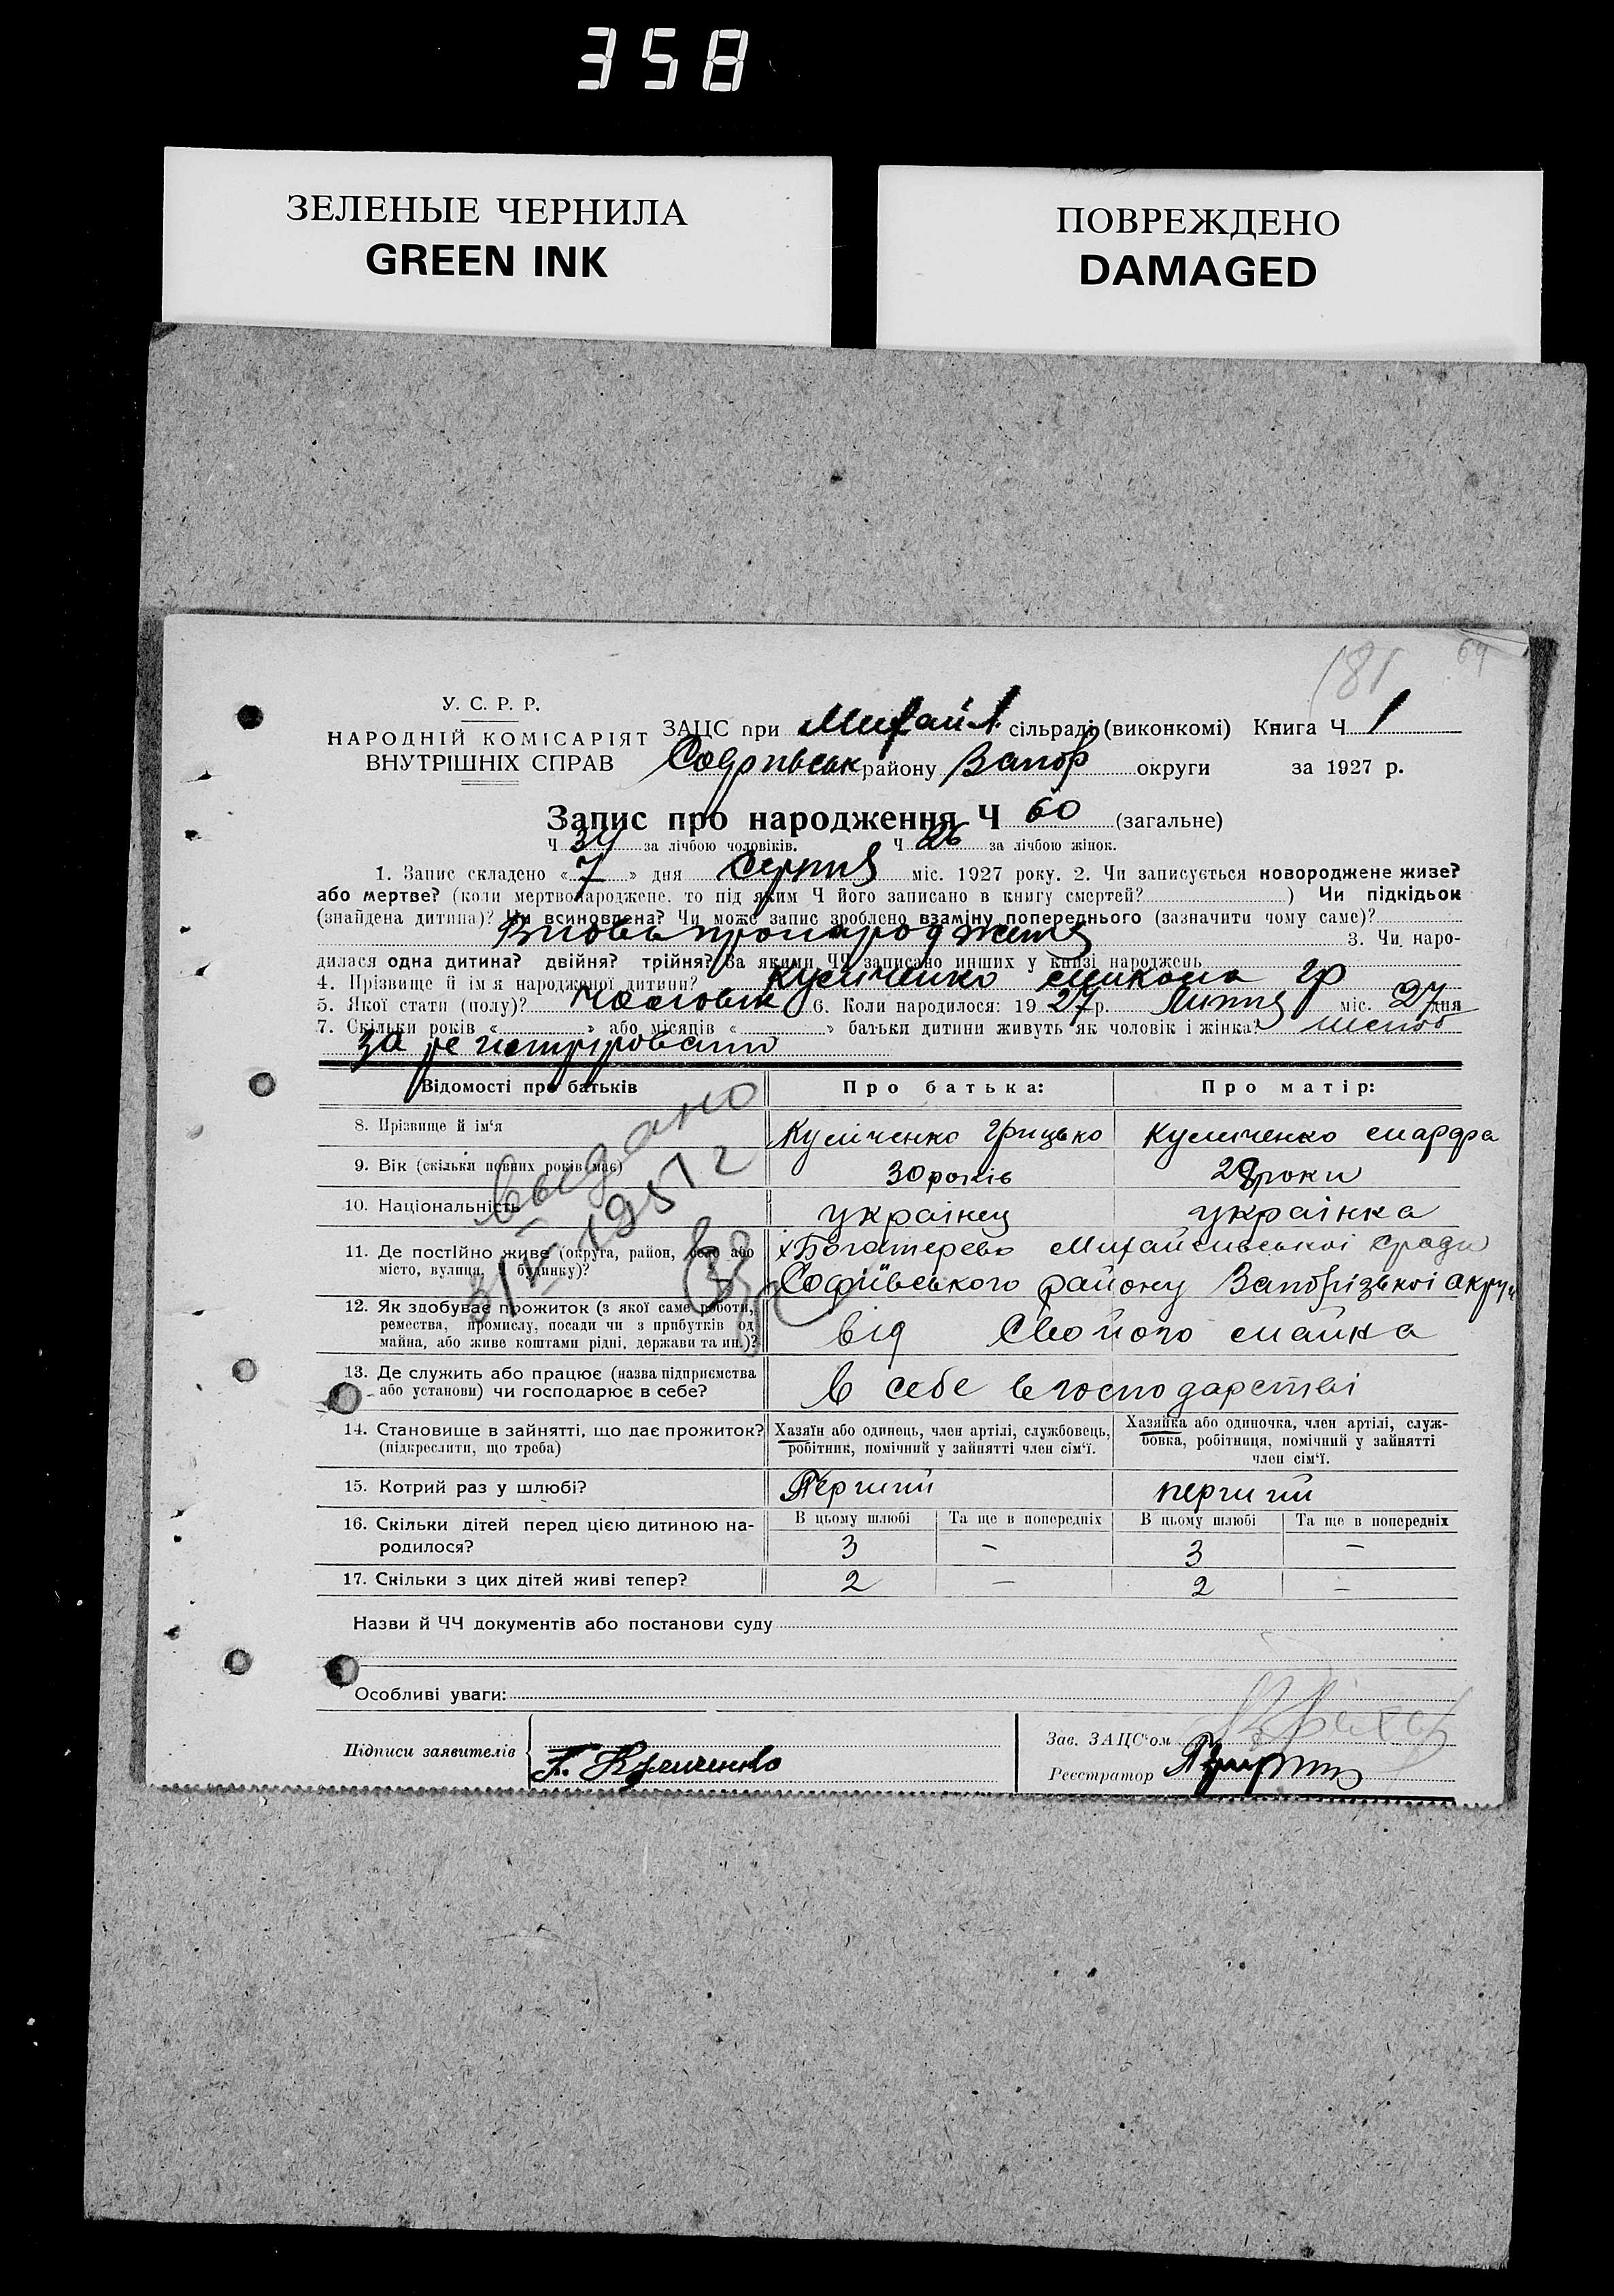 358
ЗЕЛЕНЫЕ ЧЕРНИЛА
GREEN INK
ПОВРЕЖДЕНО
DAMAGED
181
64
У. С. Р. Р.
НАРОДНІЙ КОМІСАРІЯТ
ВНУТРІШНІХ СПРАВ
ЗАЦС при Михайл. сільраді (виконкомі) Книга Ч 1
району Запор округи за 1927 р.
Запис про народження Ч 60 (загальне)
Ч 34 за лічбою чоловіків. Ч 26 за лічбою жінок.
1. Запис складено «7» дня Серпня міс. 1927 року. 2. Чи записується новороджене живе?
або мертве? (коли мертвонароджене, то під яким Ч його записано в книгу смертей? ) Чи підкідьок
(знайдена дитина)? Чи всиновлена? Чи може запис зроблено взаміну попереднього (зазначити чому саме)?
3. Чи наро-
дилася одна дитина? двійня? трійня? За якими ЧЧ записано инших у книзі народжень
4. Прізвище й ім'я народженої дитини? Куліченко Микола Гр
5. Якої стати (полу)? 6. Коли народилося: 1927 р. Липня міс. 27 дня
7. Скільки років « » або місяців « » батьки дитини живуть як чоловік і жінка? шлюб
за регистріровано
Відомості про батьків
Про батька:
Про матір:
8. Прізвище й ім'я
Куліченко Грицько
Куліченко Марфа
9. Вік (скільки повних років має)
30 років
28 роки
10. Національність
українец
українка
11. Де постійно живе (округа, район, село або
місто, вулиця, будинку)?
х Богатерево Михайлівської сради
Софіївського району Запорізької акруги
12. Як здобуває прожиток (з якої саме роботи,
ремества, промислу, посади чи з прибутків од
майна, або живе коштами рідні, держави та ин.)?
від Свойого майна
13. Де служить або працює (назва підприємства
або установи) чи господарює в себе?
в себе в господарстві
14. Становище в зайнятті, що дає прожиток?
(підкреслити, що треба)
Хазяїн або одинець, член артілі, службовець,
робітник, помічний у зайнятті член сім'ї.
Хазяйка або одиночка, член артілі, служ-
бовка, робітниця, помічний у зайнятті
член сім'ї.
15. Котрий раз у шлюбі?
Перший
перший
16. Скільки дітей перед цією дитиною на-
родилося?
В цьому шлюбі
Та ще в попередніх
В цьому шлюбі
Та ще в попередніх
3 – 3 –
17. Скільки з цих дітей живі тепер?
2 – 2 –
выдано
Назви й ЧЧ документів або постанови суду
Особливі уваги:
Підписи заявителів
Г. Куличенко
Зав. ЗАЦС'ом
Реєстратор